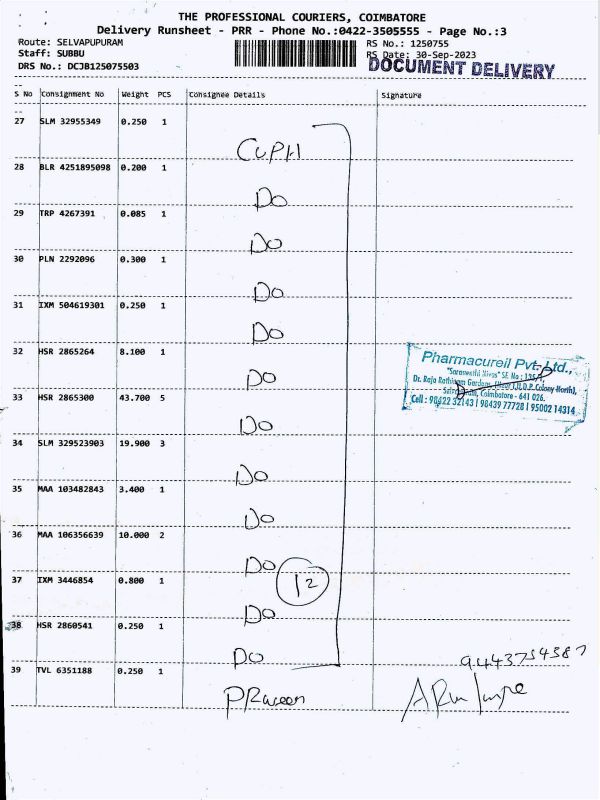 THE PROFESSIONAL COURIERS, COIMBATORE
Delivery Runsheet - PRR - Phone No.:0422-3505555 - Page No.:3
Route: SELVAPUPURAM
RS No.: 1250755
Staff: SUBBU
RS Date: 30-Sep-2023
DRS No.: DCJB125075503
DOCUMENT DELIVERY
S No Consignment No Weight PCS Consignee Details Signature
27 SLM 32955349 0.250 1
CUPH
28 BLR 4251895098 0.200 1
DO
29 TRP 4267391 0.085 1
DO
30 PLN 2292096 0.300 1
DO
31 IXM 504619301 0.250 1
DO
32 HSR 2865264 8.100 1
DO
Pharmacureil Pvt. Ltd.,
"Saraswathi Nivas" SF No : 135/1,
Dr. Raja Rathinam Gardens, (Near T.U.D.P. Colony North),
Coimbatore - 641 026.
Cell : 98422 32143 | 98439 77728 | 95002 14314
33 HSR 2865300 43.700 5
DO
34 SLM 329523903 19.900 3
DO
35 MAA 103482843 3.400 1
DO
36 MAA 106356639 10.000 2
DO
12
37 IXM 3446854 0.800 1
DO
38 HSR 2860541 0.250 1
DO
9443754387
39 TVL 6351188 0.250 1
PRaveen